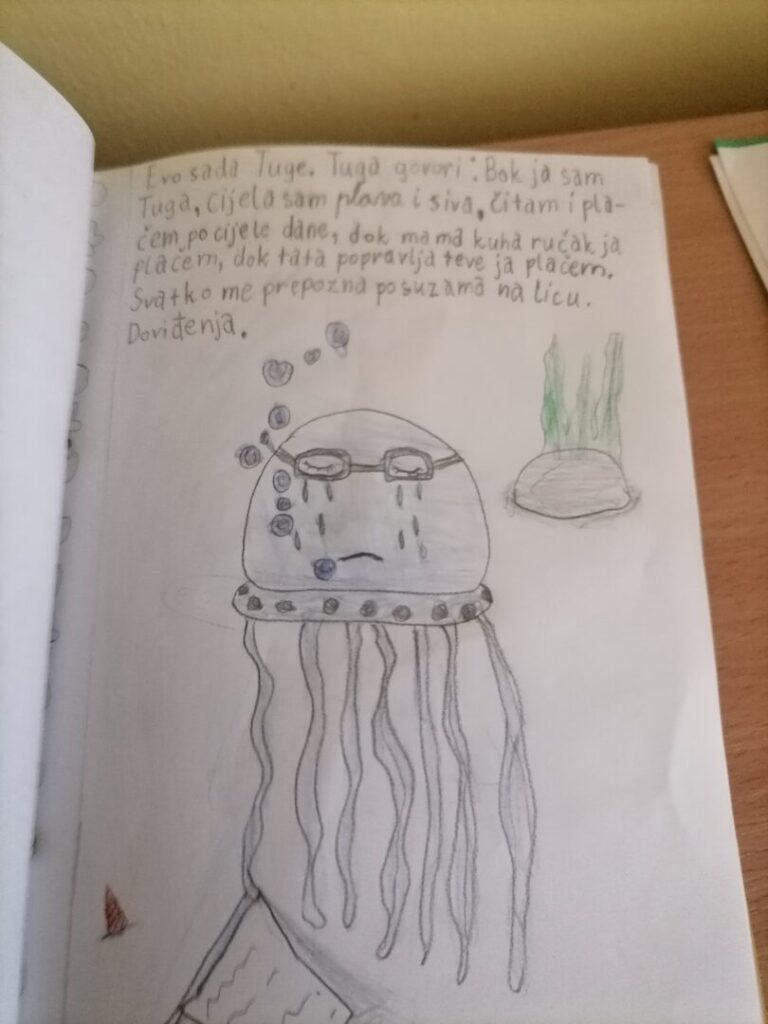 Evo sada Tuge. Tuga govori: Bok ja sam
Tuga, cijela sam plava i siva, čitam i pla-
čem po cijele dane, dok mama kuha ručak ja
plačem, dok tata popravlja teve ja plačem.
Svatko me prepozna po suzama na licu.
Doviđenja.